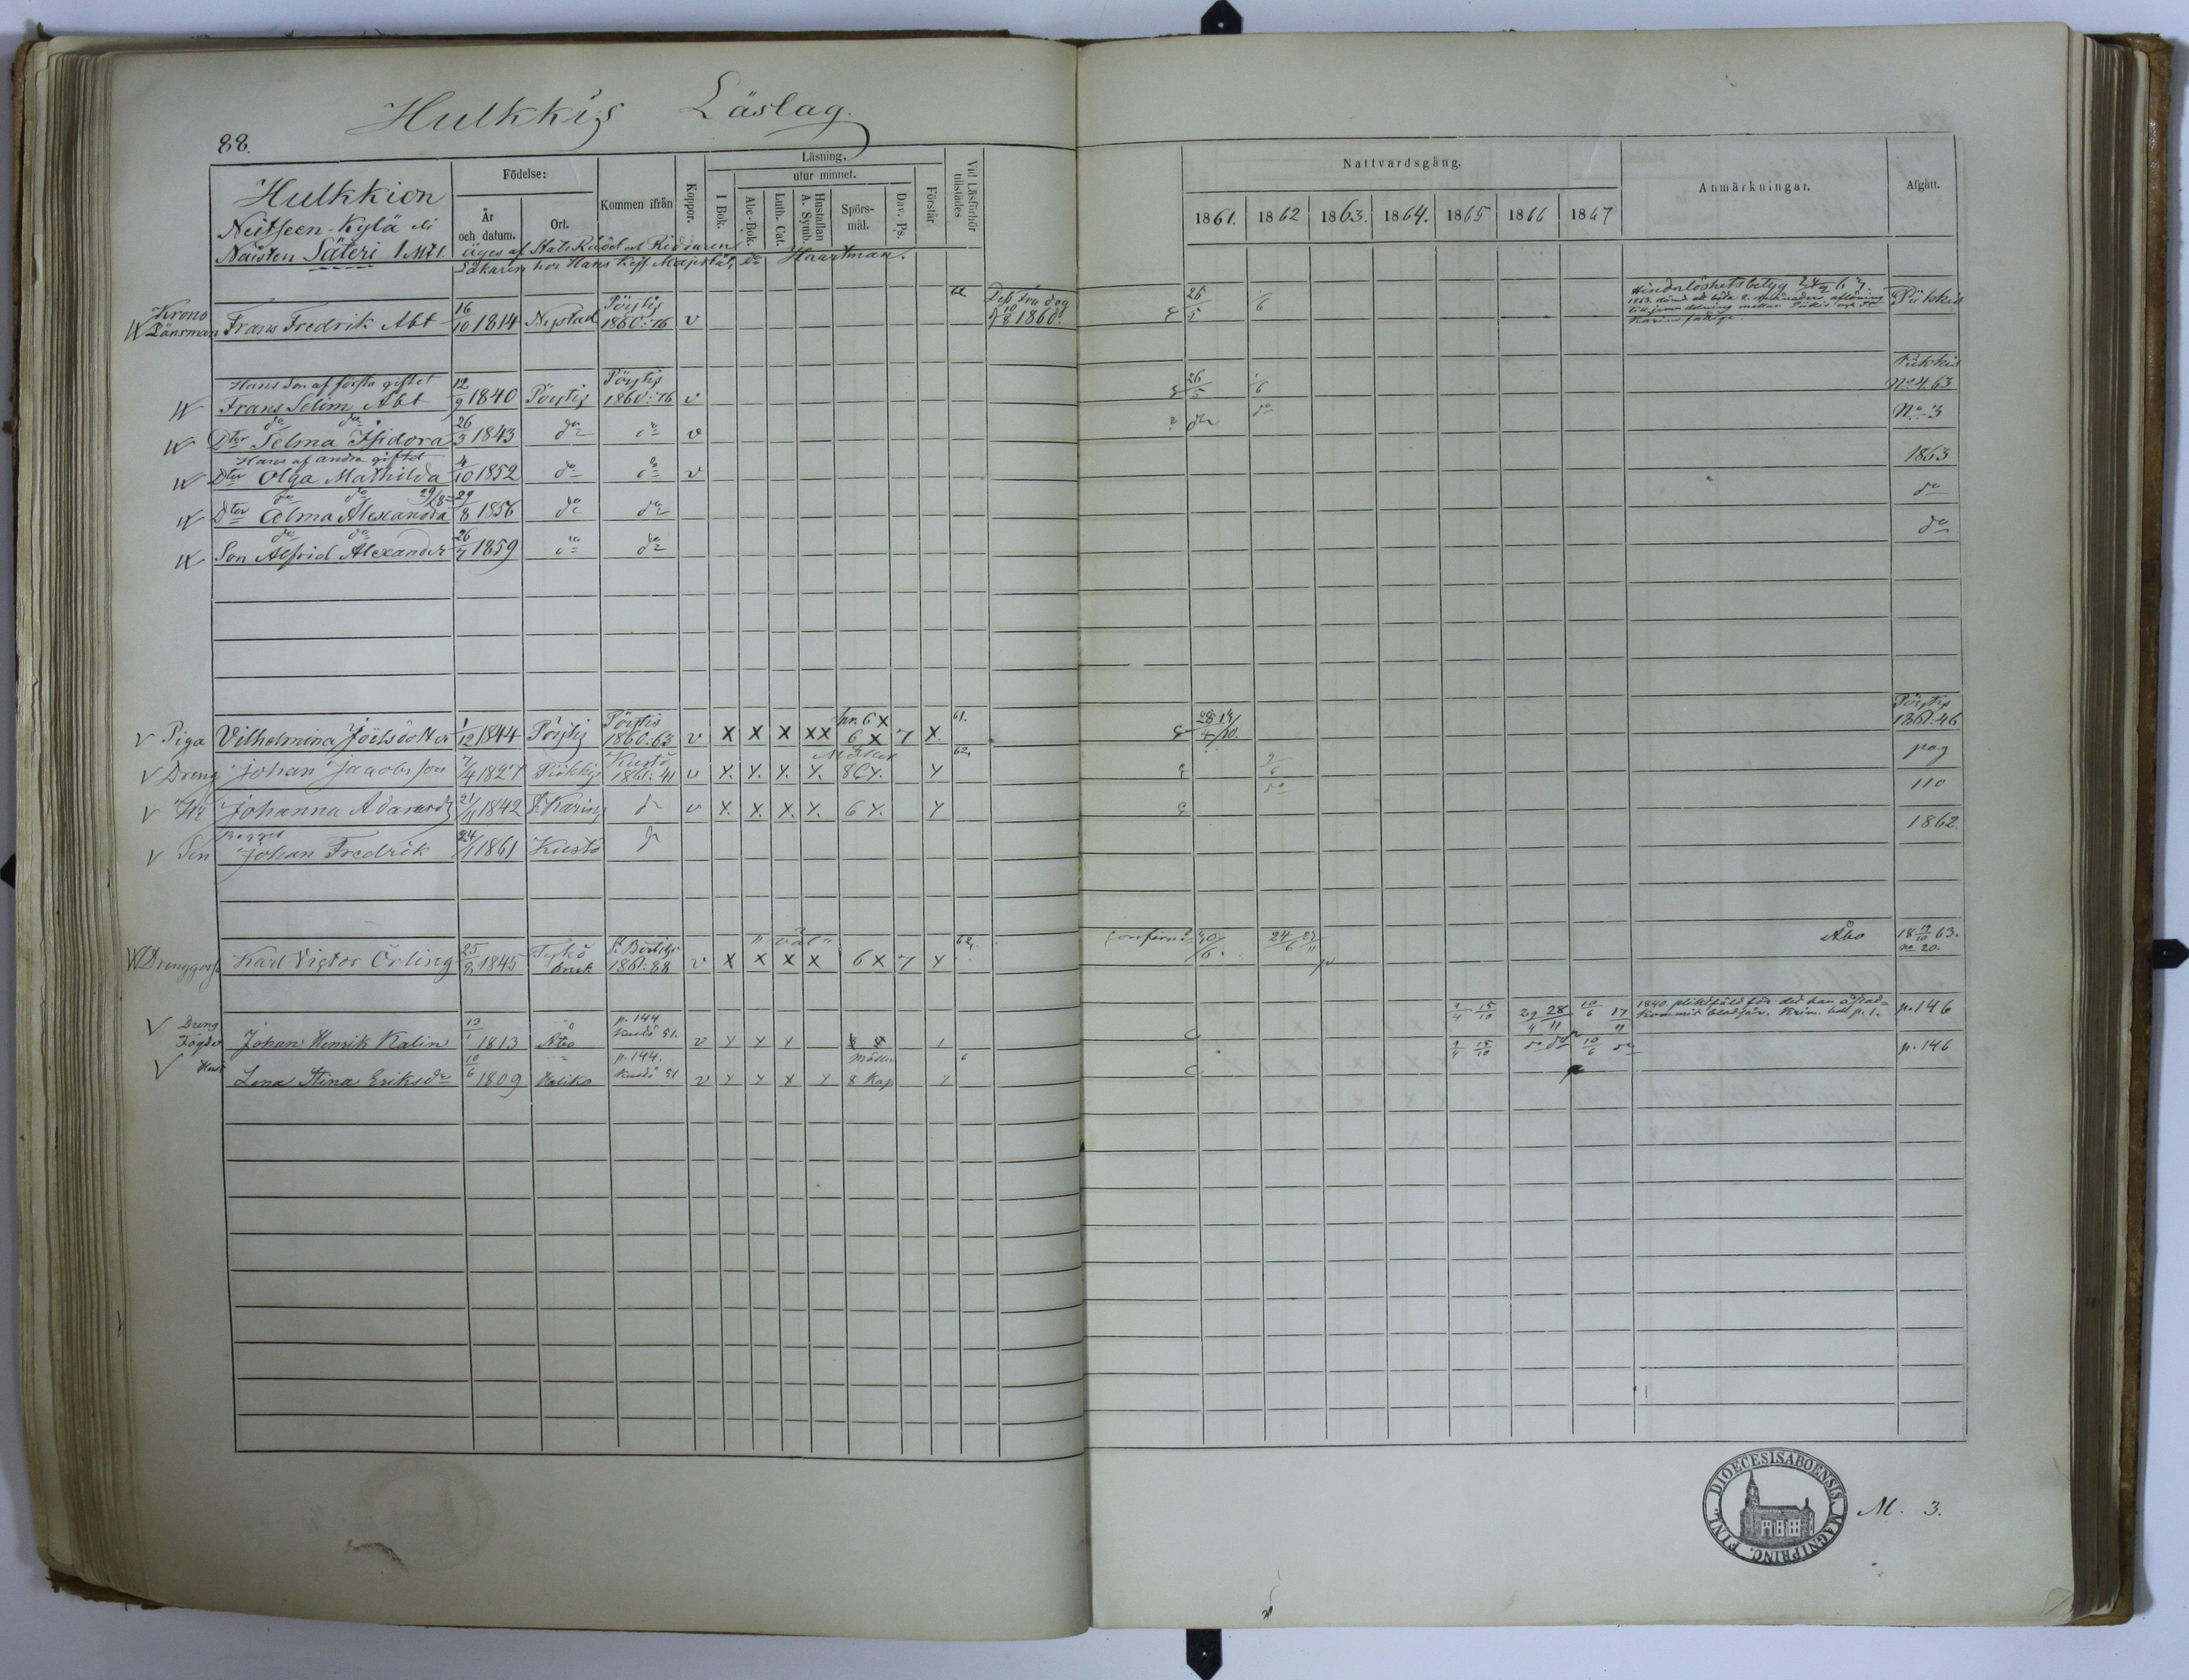 Hulkkis Läslag.
88.
Hulkkion
Neitseen-Kylä eli
Naisten Säteri 1 Mtl.
Födelse:
År och datum.
Ort.
Kommen ifrån
Koppor.
Läsning.
utur minnet.
I Bok.
Abc-Bok.
Luth. Cat.
Hustaflan A. Symb.
Spörsmål.
Dav. Ps.
Förstår.
Vid Läsförhör tillstädes
Nattvardsgång.
1861. 1862 1863. 1864. 1865 1866 1867
Anmärkningar.
Afgått.
äges af Stats Rådet och Riddaren
Läkaren hos Hans Kejs. Majestät Haartman.
Krono Länsman Frans Fredrik Abt 16/10 1814 Nystad Pöytis 1860:76 v 10/8 1860. 26/5 1/6 Hinderlöshetsbetyg Piikkis
Hans son af första giftet
Frans Selim Abt 12/9 1840 Pöytis Pöytis 1860:76 v 26/5 1/6 Piikkis No 4. 63
do do
Dter Selma Isidora 26/3 1843 do do v do do No 3
Hans af andra giftet
Dter Olga Mathilda 4/10 1852 do do v 1863
do do
Dter Alma Alexandra 29/8 1856 do do do
do do
Son Alfrid Alexander 26/7 1859 do do do
Piga Vilhelmina Joelsdotter 1/12 1844 Pöytis Pöytis 1860.63 v X X X XX 6 X 7 X 61. Pöytis 1861.46
Dreng Johan Jacobsson 1827 Piikkis Kustö 1861:41 v X. X. X. X. Möller 8 C X. X 62. pag
Hu Johanna Adamsdr 21/11 1842 S:t Karins do v X. X. X. X. 6 X. X do 110
Son Johan Fredrik 24/1 1861 Kustö do 1862.
Drenggosse Karl Victor Örling 25/8 1845 Tykö bruk S:t Bertils 1861:88 v X X X X 6 X 7 X 62. 24/6 Åbo 18 12/10 63. no 20.
Dreng Fogde Johan Henrik Kalin 1813 Åbo p. 144 Kustö 51. v X X X 9/4 15/10 29/4 28/11 10/6 17/11 p. 146
Hust Lena Stina Eriksdr 10/6 1809 Haliko p. 144. Kustö 51 v X X X X Möller 8 Kap X 9/4 15/10 do do 10/6 do p. 146
DIOECESISABOENSIS. MAGNI PRINC. FINL.
M. 3.